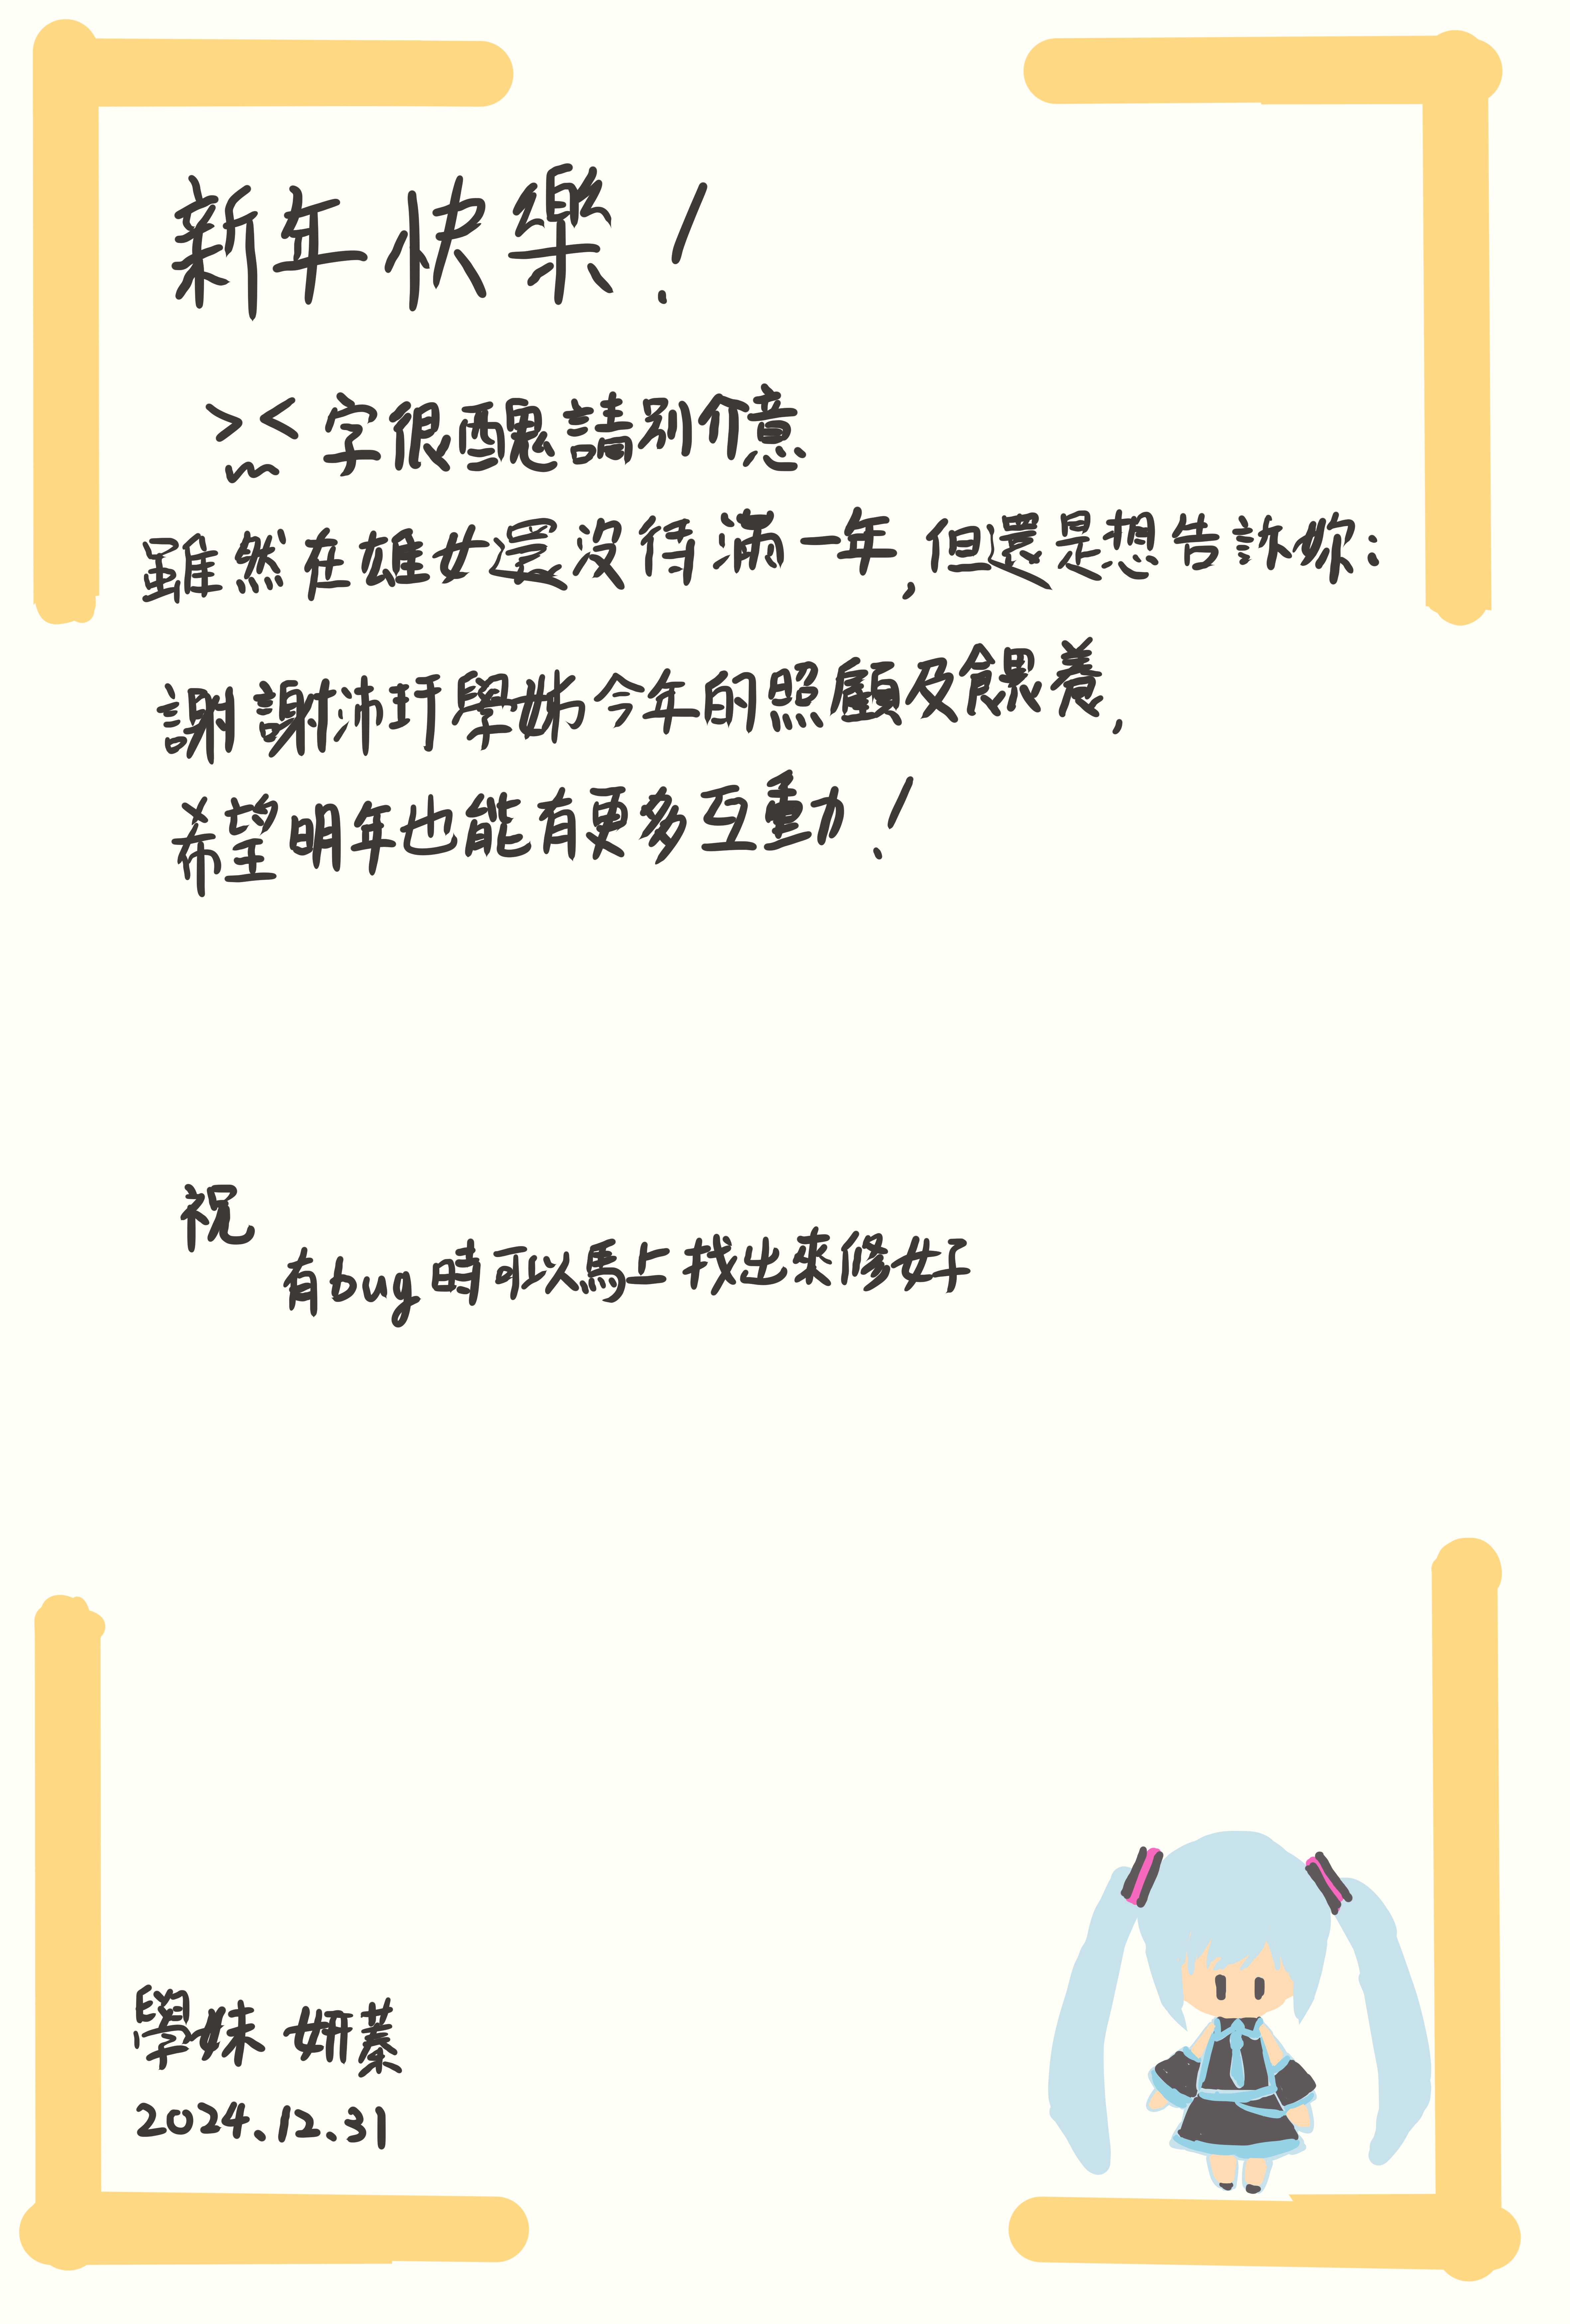 新年快樂！
><字很醜請別介意
雖然在雄女還沒待滿一年，但還是想告訴妳：
謝謝沛玗學姊今年的照顧及餵養，
希望明年也能有更多互動！
祝
有bug時可以馬上找出來修好
學妹 妍蓁
2024.12.31